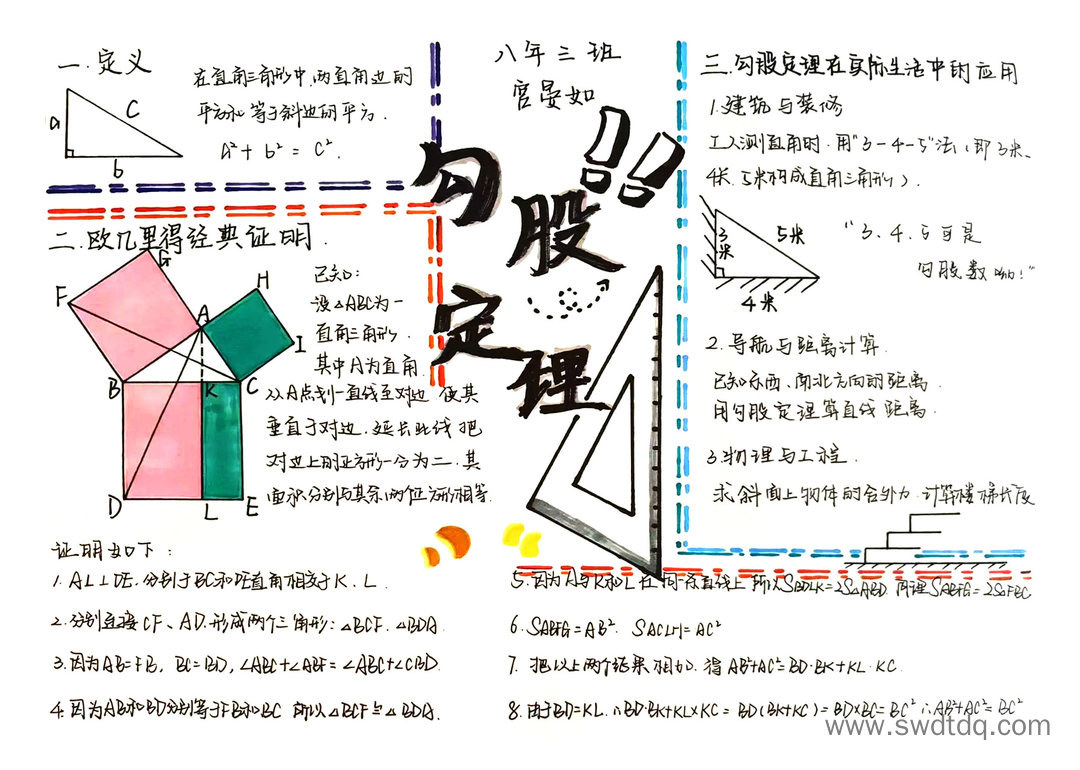 一.定义
在直角三角形中,两直角边的
平方和等于斜边的平方.
a² + b² = c².
a
C
b
八年三班
宫晏如
勾股定理!!
二.欧几里得经典证明.
F
G
H
A
I
B
K
C
D
L
E
已知:
设△ABC为一
直角三角形,
其中A为直角.
从A点划一直线至对边,使其
垂直于对边.延长此线把
对边上的正方形一分为二.其
面积分别与其余两个正方形相等.
证明如下:
1. AL⊥DE.分别于BC和DE直角相交于K、L.
2.分别连接CF、AD.形成两个三角形:△BCF.△BDA.
3.因为AB=FB, BC=BD, ∠ABC+∠ABF=∠ABC+∠CBD.
4.因为AB和BD分别等于FB和BC 所以△BCF≌△BDA.
三.勾股定理在实际生活中的应用
1.建筑与装修
工人测直角时.用"3-4-5"法(即3米、
4米、5米构成直角三角形).
3米
5米
4米
"3、4、5可是
勾股数哟!"
2.导航与距离计算.
已知东西、南北方向的距离.
用勾股定理算直线距离.
3.物理与工程.
求斜面上物体的合外力.计算楼梯长度
5.因为A与K和L在同一条直线上 所以SBDLK=2S△ABD.同理SABFG=2S△FBC
6. SABFG=AB². SACIH=AC²
7. 把以上两个结果相加.得AB²+AC²=BD·BK+KL·KC.
8.由于BD=KL.∴BD·BK+KL×KC = BD(BK+KC)=BD×BC=BC²∴AB²+AC²=BC²
www.swdtdq.com